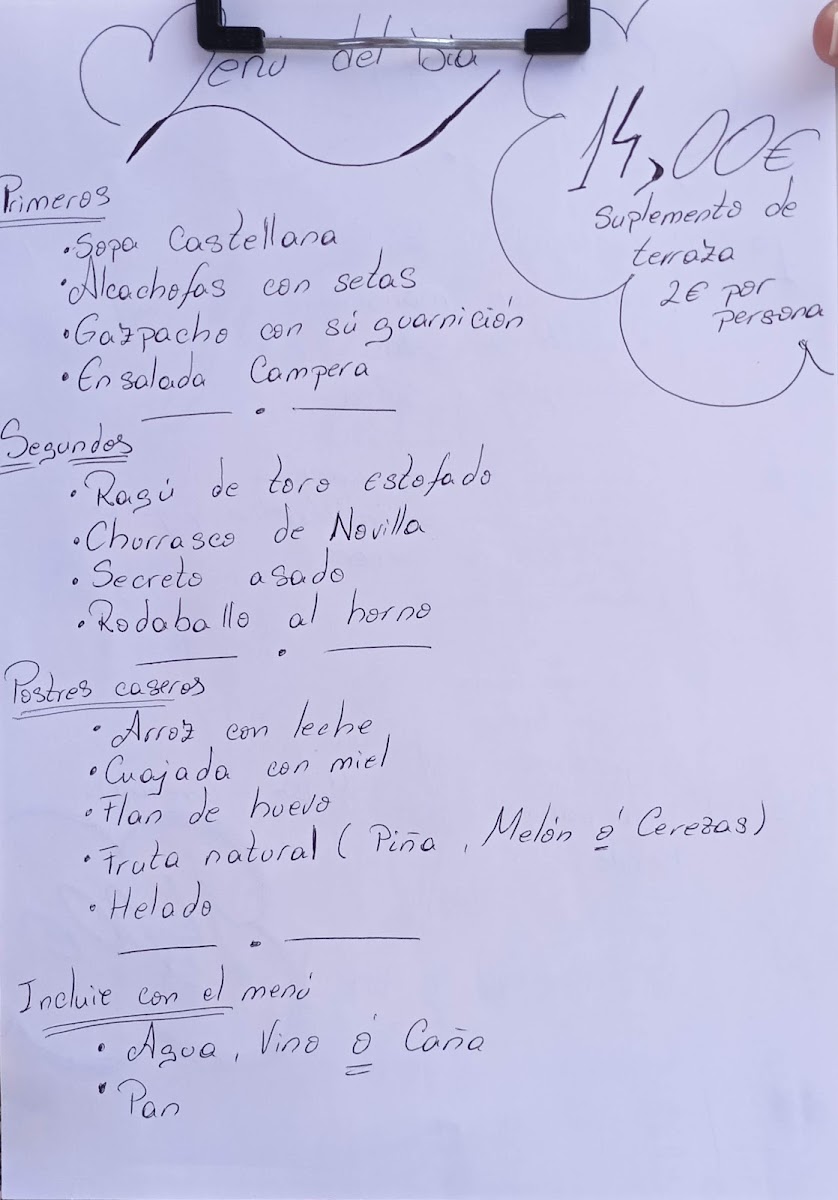 Menú del Día
14,00€
Suplemento de
terraza
2€ por
persona
Primeros
•Sopa Castellana
•Alcachofas con setas
•Gazpacho con sú guarnición
•Ensalada Campera
Segundos
•Ragú de toro estofado
•Churrasco de Novilla
•Secreto asado
•Rodaballo al horno
Postres caseros
•Arroz con leche
•Cuajada con miel
•Flan de huevo
•Fruta natural (Piña, Melón ó Cerezas)
•Helado
Incluie con el menú
•Agua, Vino ó Caña
•Pan